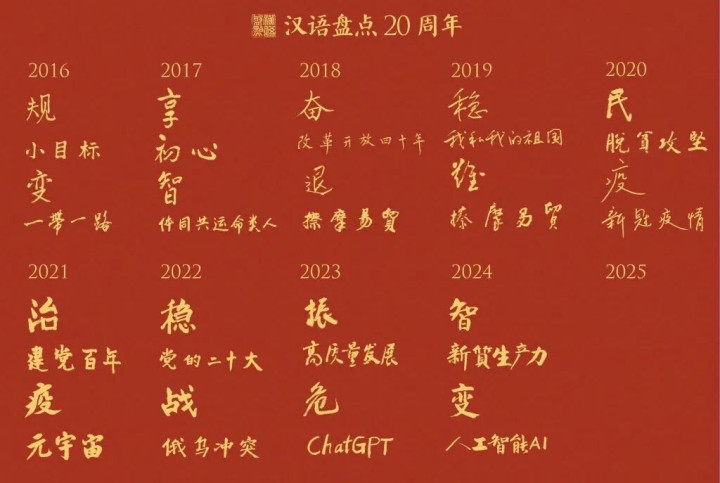 汉语盘点20周年
2016
规
小目标
变
一带一路
2017
享
初心
智
体同共运命类人
2018
奋
改革开放四十年
退
擦摩易貿
2019
稳
我和我的祖国
難
擦摩易貿
2020
民
脱貧攻坚
疫
新冠疫情
2021
治
建党百年
疫
元宇宙
2022
稳
党的二十大
战
俄乌冲突
2023
振
高质量发展
危
ChatGPT
2024
智
新質生产力
变
人工智能AI
2025